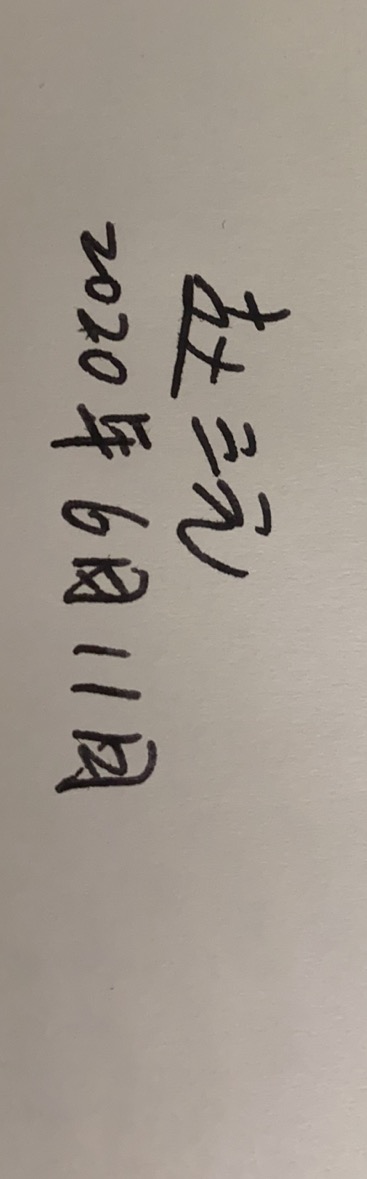 赵三元
2020年6月11日